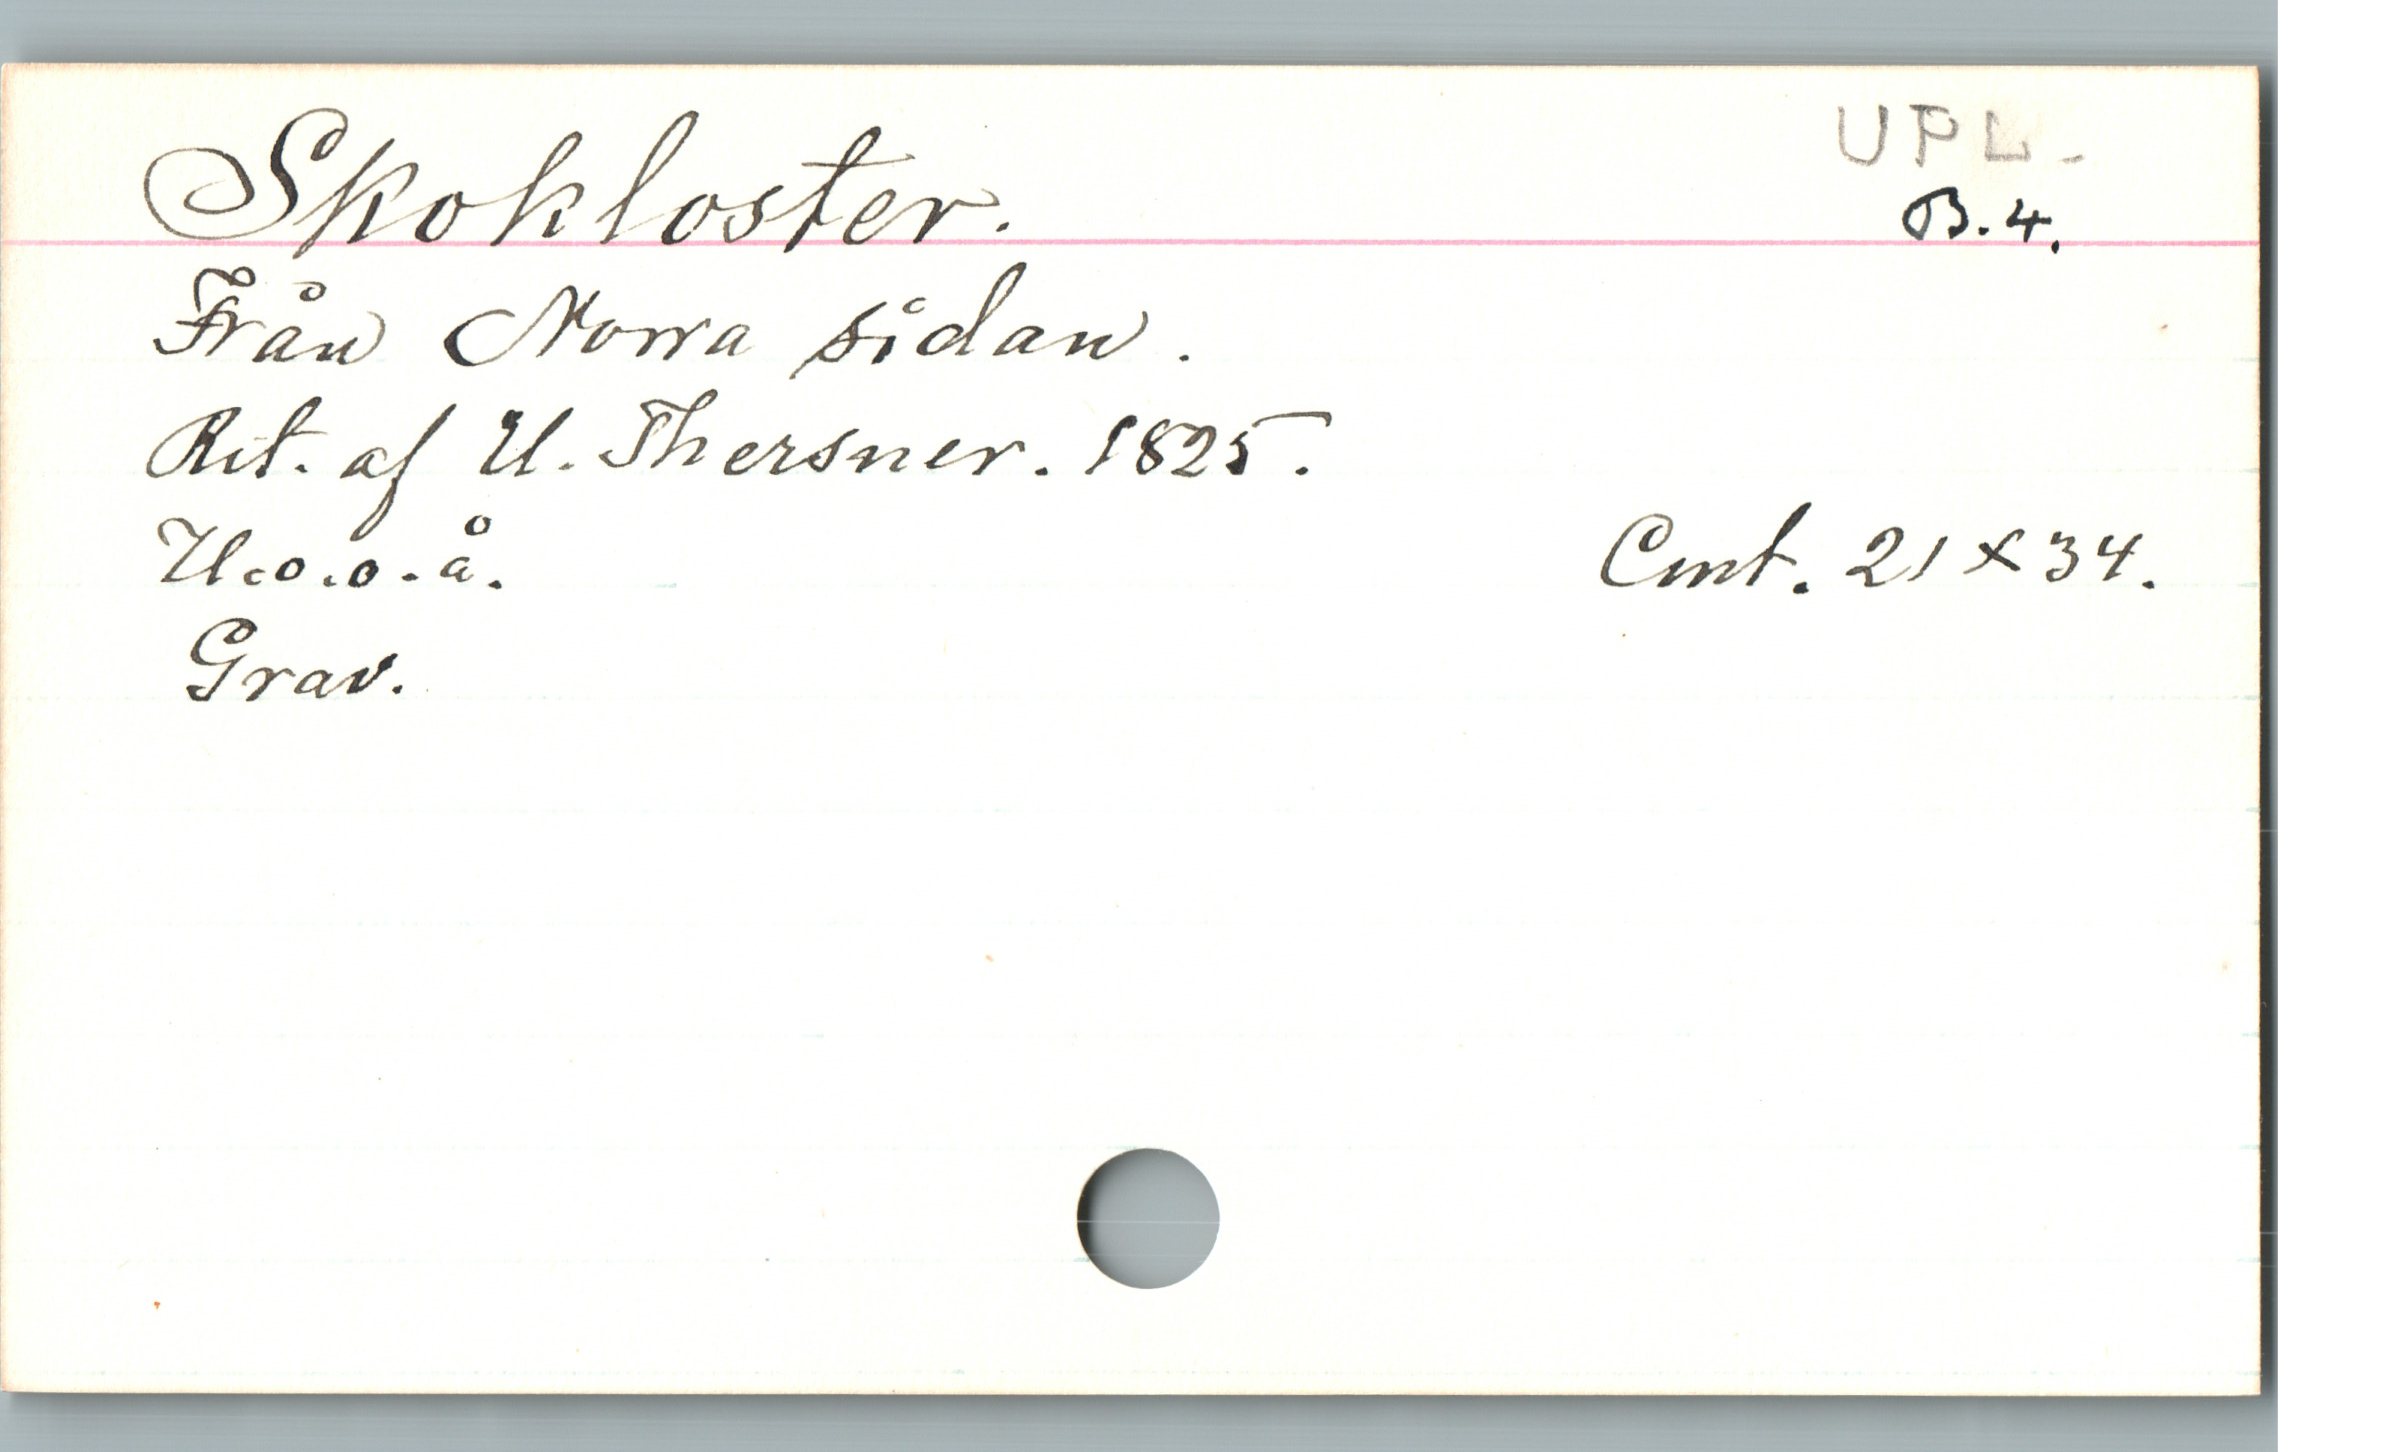 UPL.
Skokloster.
B. 4.
Från Norra sidan.
Rit. af U. Thersner. 1825.
U. o. o. å.
Cmt. 21 x 34.
Grav.